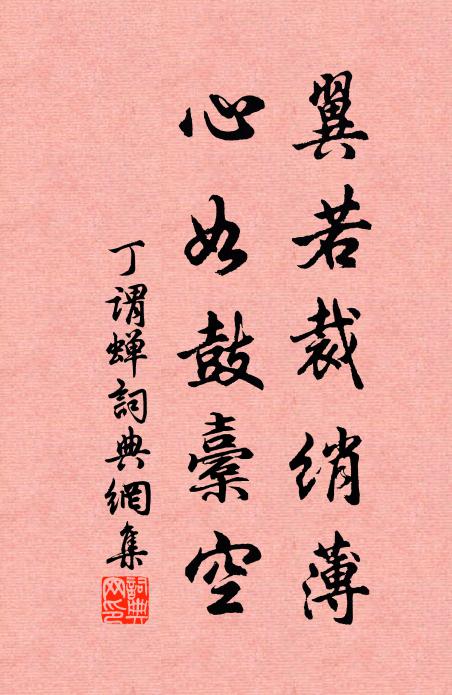 翼若裁绡薄
心如鼓橐空
丁谓蝉詞典網集
詞典网印